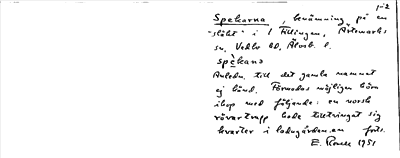 1-2
Spekarna, benämning på en
"släkt" i Fillingen, Ärtemarks
sn, Vedbo hd, Älvsb. l.
spèkana
Anledn. till det gamla namnet
ej känd. Förmodas möjligen höra
ihop med följande: en norsk
rövartrupp hade tilltvingat sig
kvarter i ladugården, en forts.
E. 1951